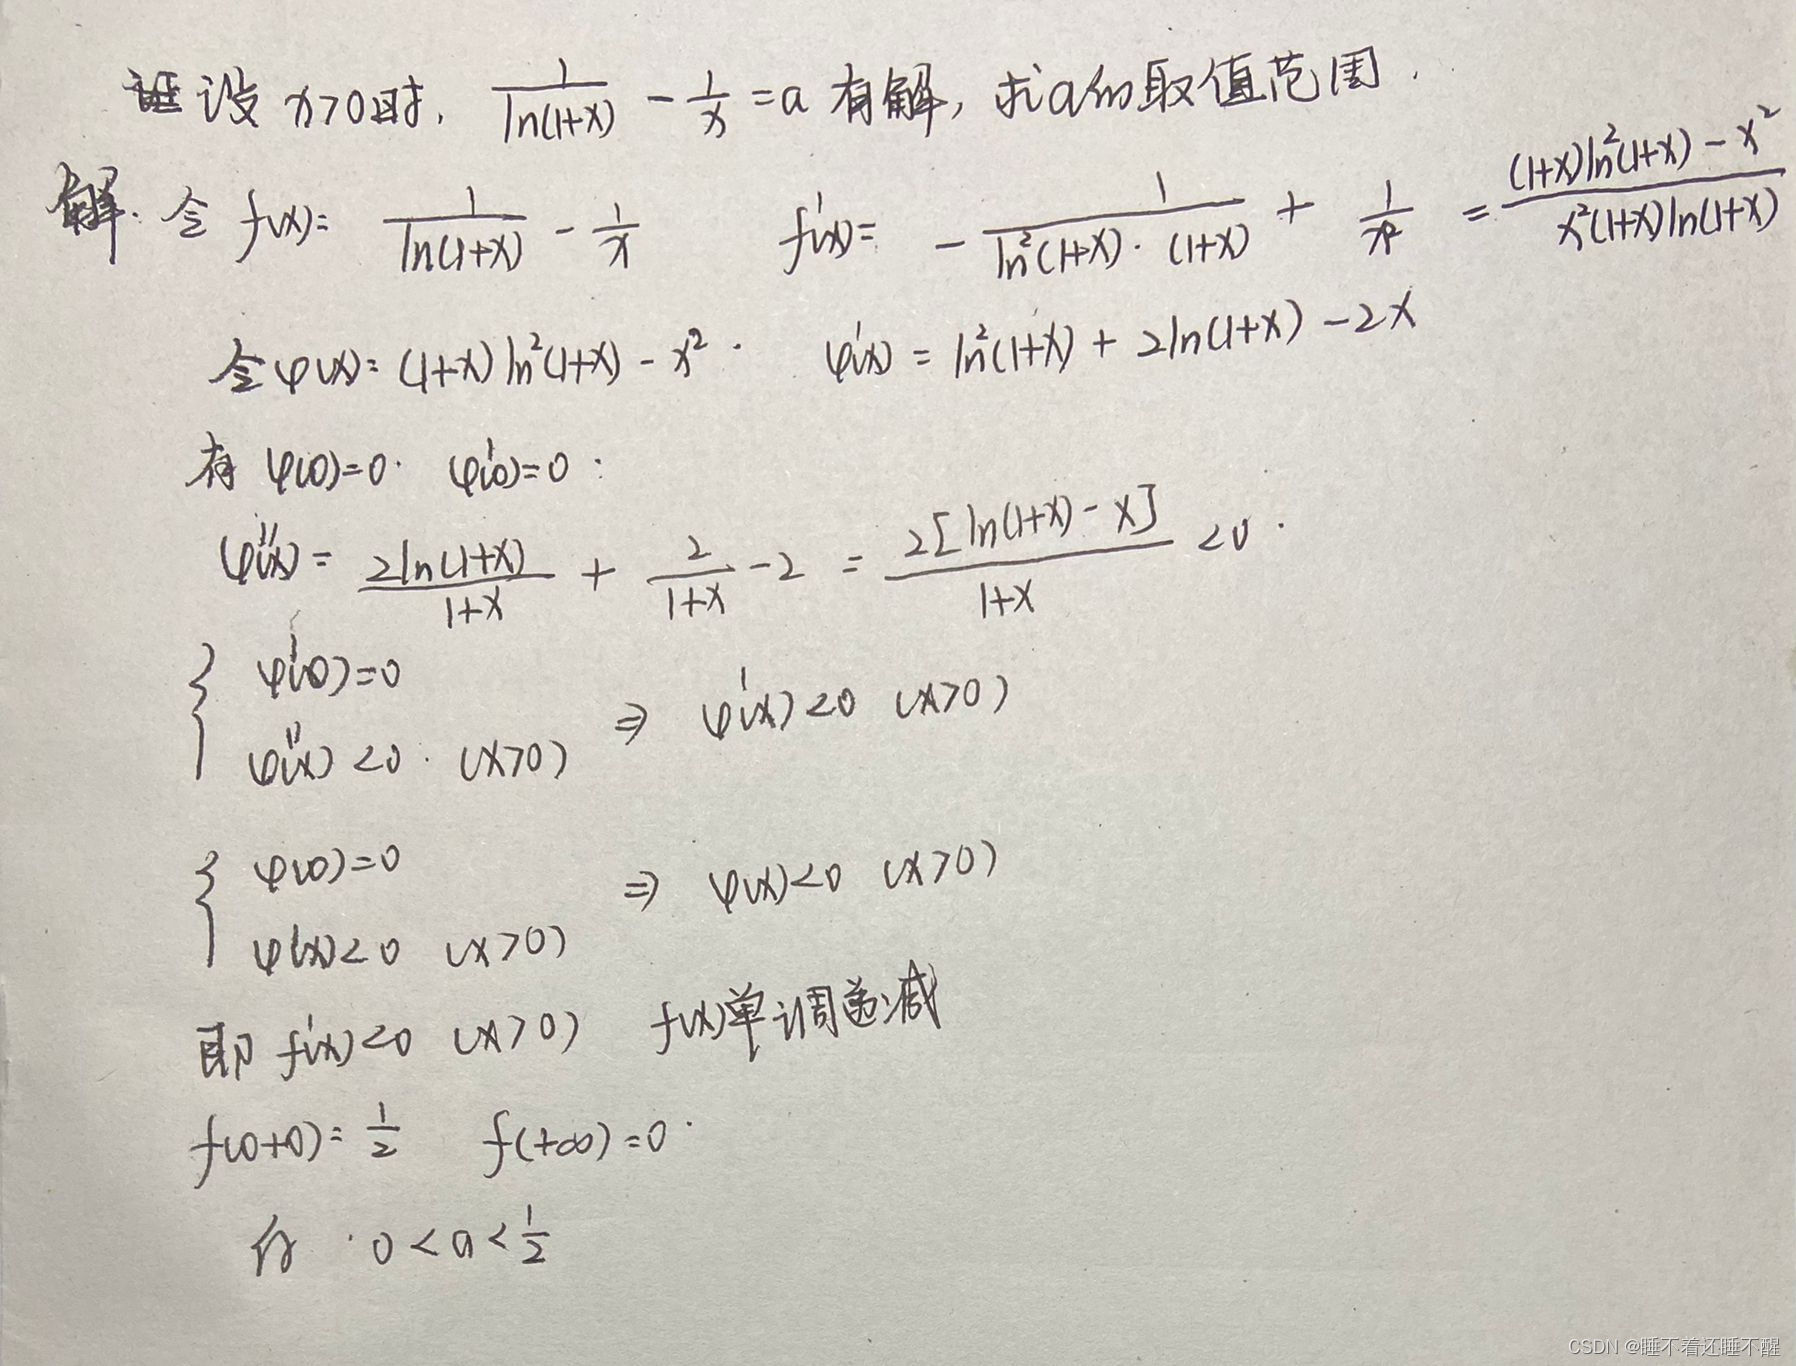 设 x>0时, 1/ln(1+x) - 1/x = a 有解, 求a的取值范围.
解. 令 f(x)= 1/ln(1+x) - 1/x f'(x)= - 1/(ln²(1+x)·(1+x)) + 1/x² = ((1+x)ln²(1+x) - x²)/(x²(1+x)ln(1+x))
令φ(x)= (1+x)ln²(1+x) - x². φ'(x) = ln²(1+x) + 2ln(1+x) - 2x
有 φ(0)=0. φ'(0)=0.
φ''(x) = 2ln(1+x)/(1+x) + 2/(1+x) - 2 = 2[ln(1+x) - x]/(1+x) <0.
{ φ'(0)=0
φ''(x) <0. (x>0) ⇒ φ'(x) <0 (x>0)
{ φ(0)=0
φ'(x) <0 (x>0) ⇒ φ(x) <0 (x>0)
即 f'(x) <0 (x>0) f(x)单调递减
f(0+0)= 1/2 f(+∞) =0.
0 < a < 1/2
CSDN @睡不着还睡不醒